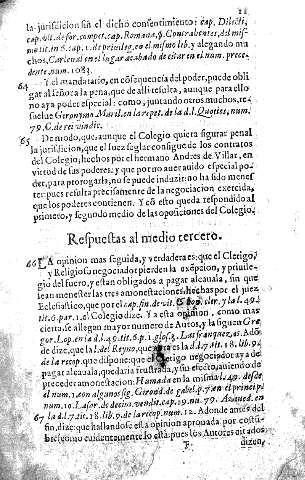 la jurisdicion sin el dicho consentimiento: cap. Dilecti,
cap. vit. de for. compet. cap. Romana, §. Contrahentes, del mis-
mo tit. in 6. cap. 1. de privileg. en el mismo lib. y alegando mu
chos, Carleual en el lugar acabado de citar en el num. prece-
dente, num. 1083.
64 Y el mandatario, en cõsequencia del poder, puede obli
gar al señor a la pena, que de alli resulta, aunque para ello
no aya poder especial: como, juntando otros muchos, re-
suelue Geronymo Maril. en la repet. de la d. l. Quoties, num.
79. C. de rei vindic.
65 De modo, que, aunque el Colegio quiera figurar penal
la jurisdicion, que el juez seglar consigue de los contratos
del Colegio, hechos por el hermano Andres de Villar, en
virtud de sus poderes; y que por no auer auido especial po-
der, para prorogarla, no se pueda induzir: no ha sido menes
ter: pues resulta precisamente de la negociacion exercida,
que los poderes contienen. Y cõ esto queda respondido al
primero, y segundo medio de las oposiciones del Colegio.
Respuestas al medio tercero.
66 LA opinion mas seguida, y verdadera es: que el Clerigo,
y Religioso negociador pierden la exẽpcion, y priuile-
gio del fuero, y estan obligados a pagar alcauala, sin que
sean menester las tres amonestaciones, hechas por el juez
Eclesiastico, que por el cap. fin. de vit. & hon. cler. y la l. 49.
tit. 6. par. 1. el Colegio dize. Y a esta opinion, como mas
cierta, se allegan mayor numero de Autores, y la siguen Gre
gor. Lop. en la d. l. 49. tit. 6. p. 1. glos. 3. Lasarte,
de dize, que la l. del Reyno, que es la d. l. 7. tit. 18. lib. 9.
de la recop. que dispone: que el Clerigo negociador aya de
pagar alcauala, quedaria frustrada, y sin efecto, auiendo de
preceder amonestacion:
num. 1.
num. 10. Lasar. de decim. vendit. cap. 19. num. 79.
67 la d. l. 7. tit. 18. lib. 9. de la recop. num. 12. Adonde antes del
fin, dize: que hallandose esta opinion aprouada por costũ-
bre (como euidentemente lo està: pues los Autores citados
dizen,